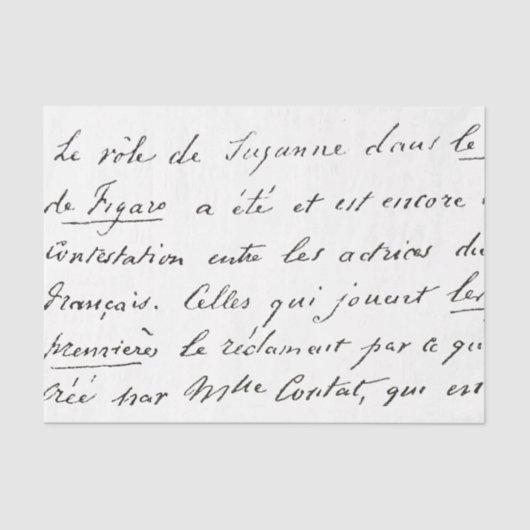 Le rôle de Suzanne dans le
de Figaro a été et est encore
Contestation entre les actrices du
français. Celles qui jouent les
premières le réclament par ce qu
créé par Mlle Contat, qui en